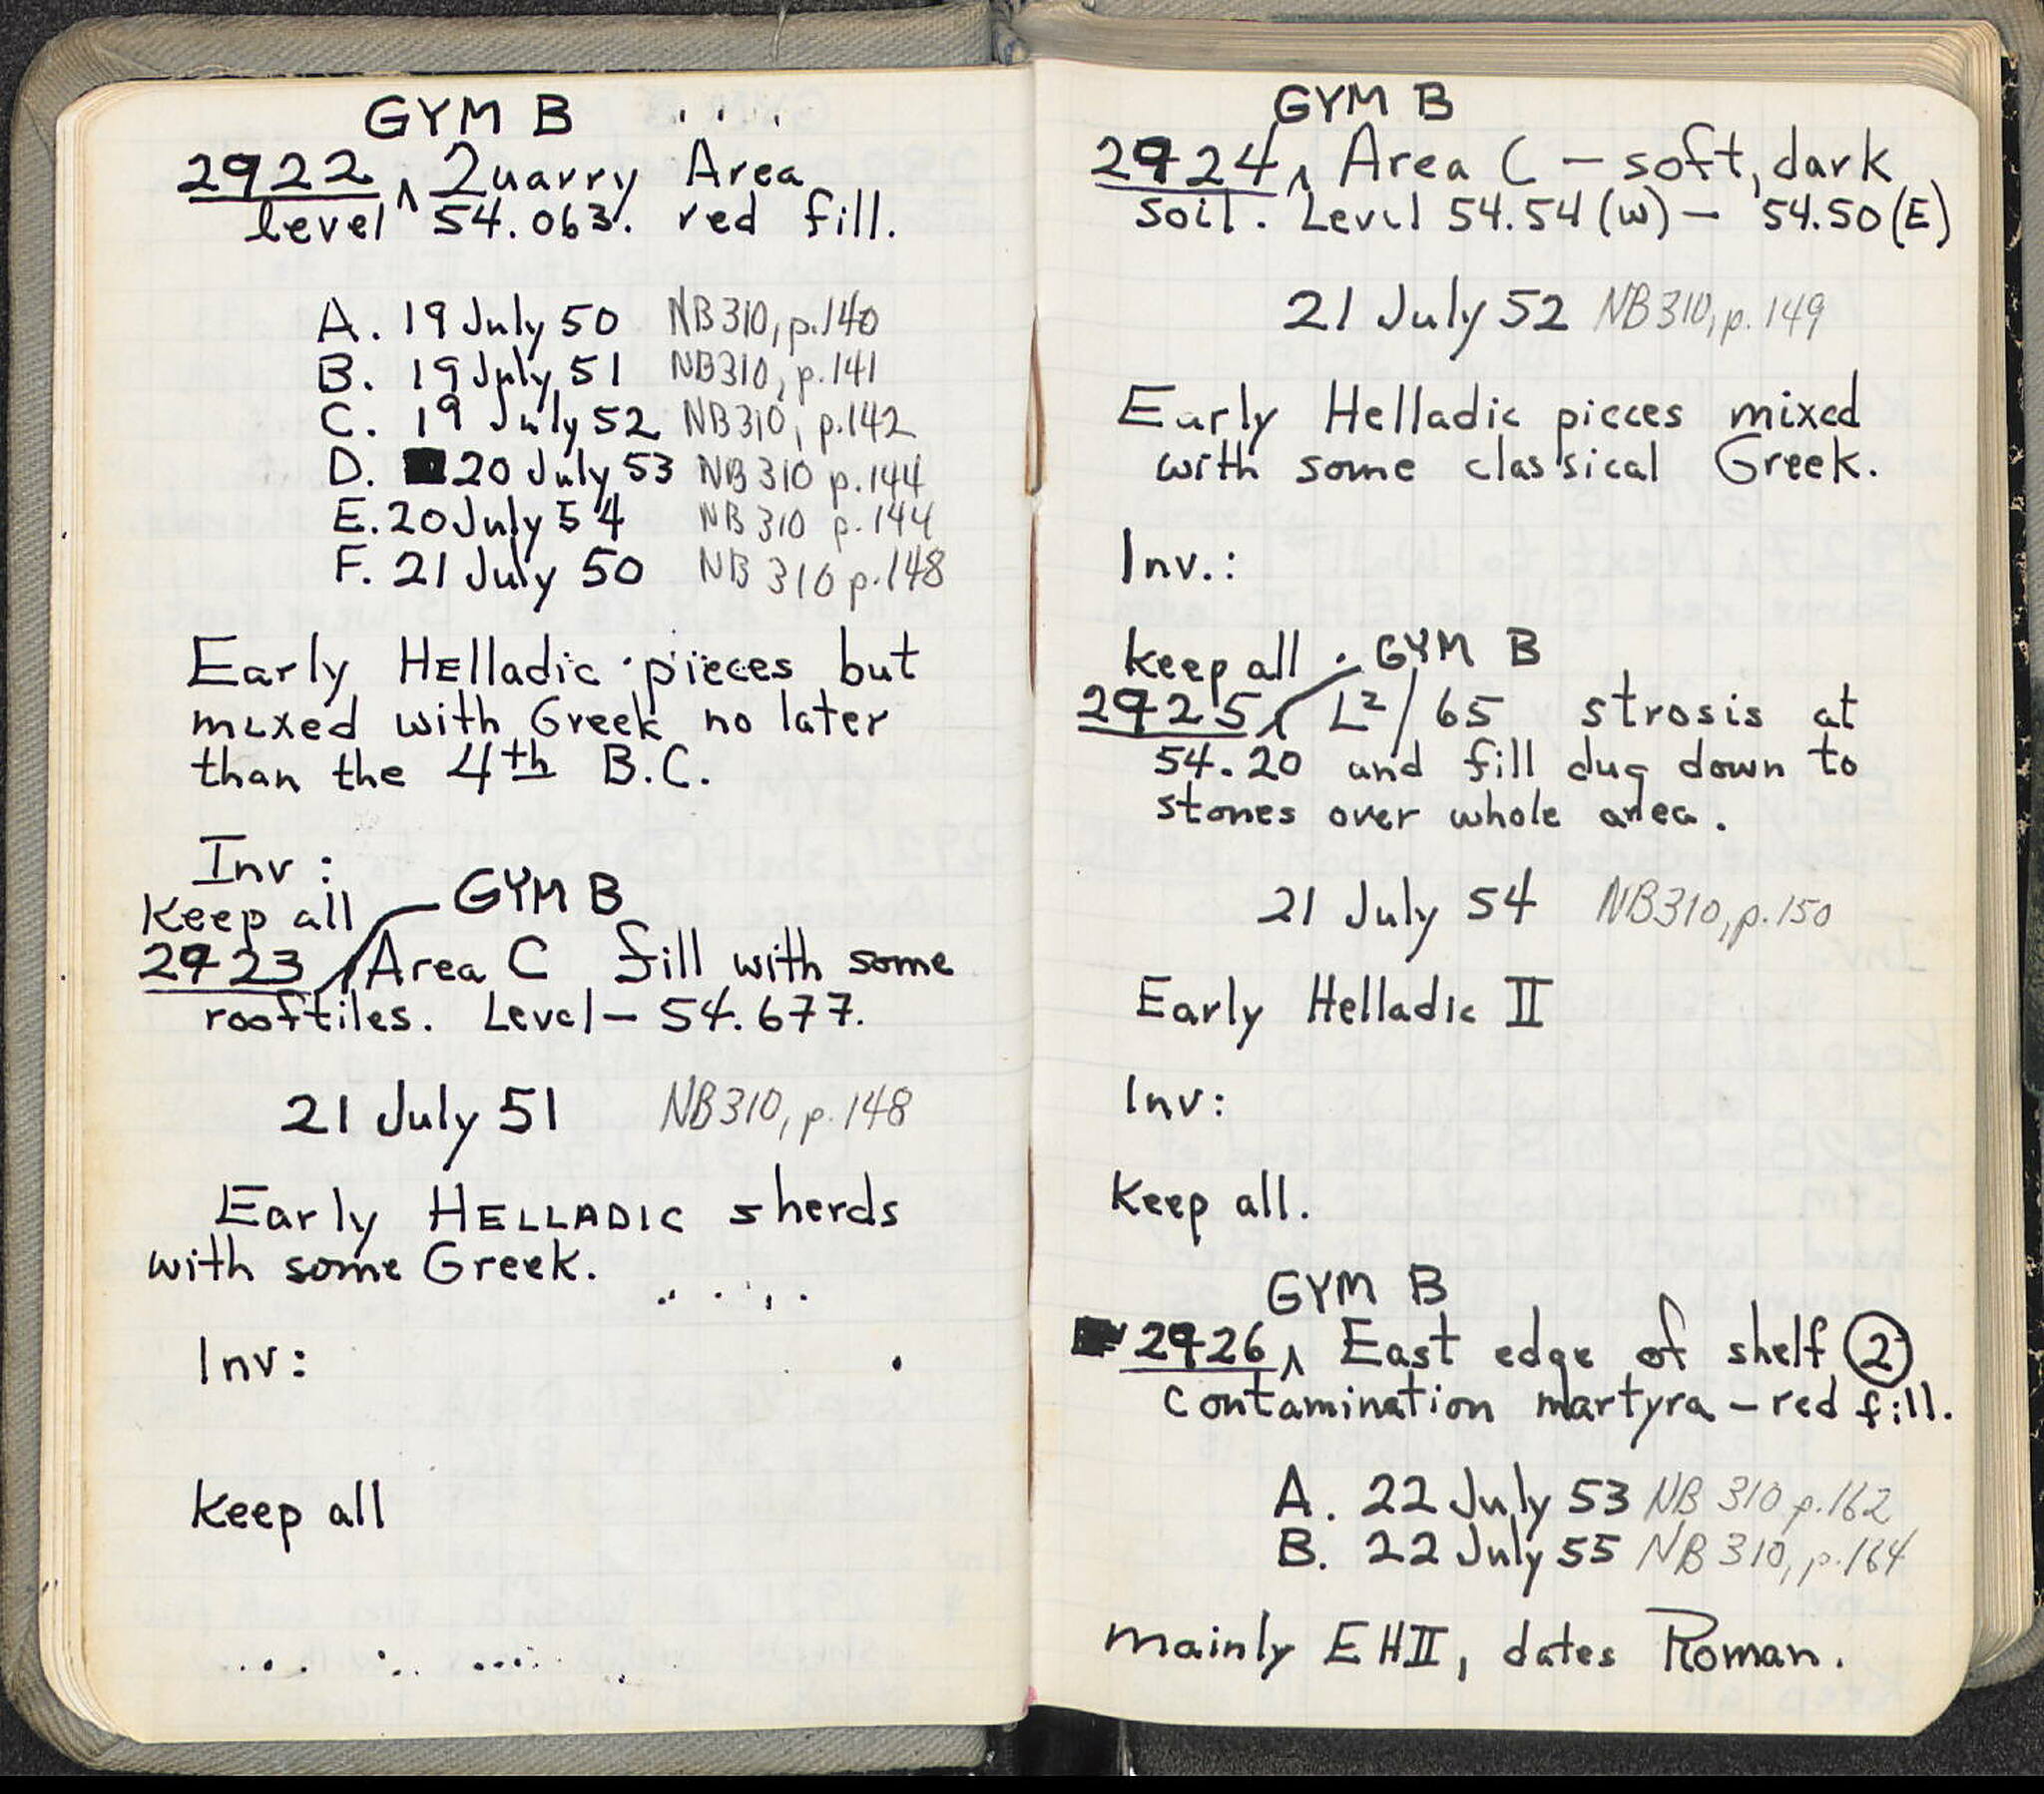 GYM B
2922 ʌ Quarry Area
level 54.063. red fill.
A. 19 July 50 NB310, p.140
B. 19 July 51 NB310, p.141
C. 19 July 52 NB310, p.142
D. 20 July 53 NB310 p.144
E. 20 July 54 NB310 p.144
F. 21 July 50 NB 310 p.148
Early Helladic pieces but
mixed with Greek no later
than the 4th B.C.
Inv :
Keep all
GYM B
2923 ʌ Area C fill with some
rooftiles. Level – 54.677.
21 July 51 NB310, p.148
Early HELLADIC sherds
with some Greek.
Inv:
Keep all
GYM B
2924 ʌ Area C – soft, dark
soil. Level 54.54 (W) – 54.50 (E)
21 July 52 NB310, p. 149
Early Helladic pieces mixed
with some classical Greek.
Inv.:
Keep all .
GYM B
2925 ʌ L²/65 strosis at
54.20 and fill dug down to
stones over whole area.
21 July 54 NB310, p.150
Early Helladic II
Inv:
Keep all.
GYM B
2926 ʌ East edge of shelf ②
contamination martyra – red fill.
A. 22 July 53 NB 310 p.162
B. 22 July 55 NB 310, p.164
mainly EHII, dates Roman.